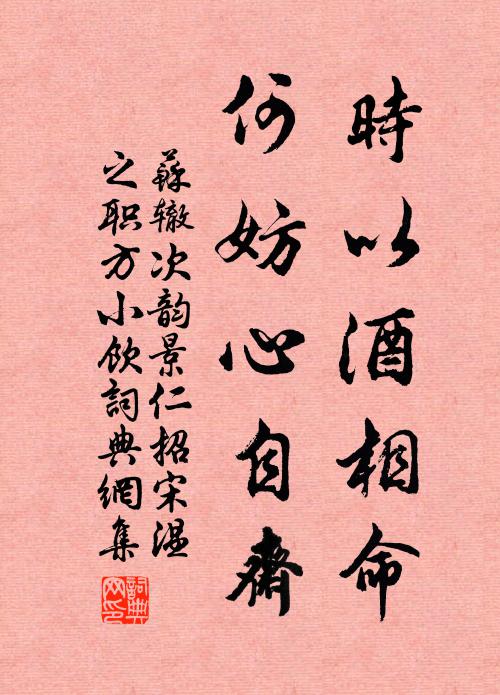 時以酒相命
何妨心自齋
蘇辙次韵景仁招宋温
之职方小飲詞典網集
詞典網印